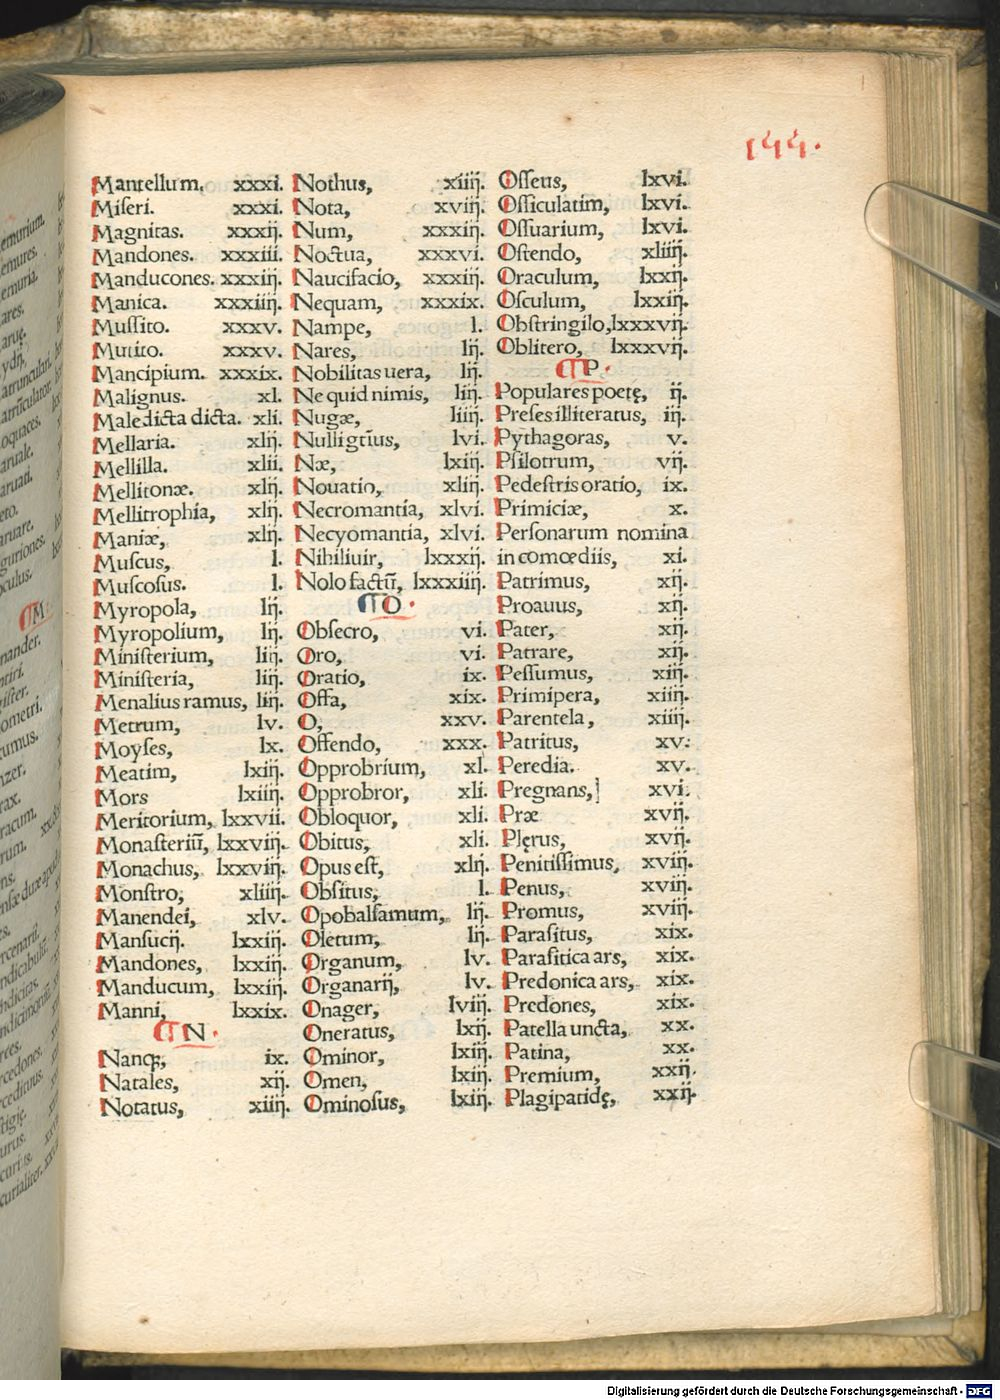 144.
Mantellum, xxxi.
Miseri. xxxi.
Magnitas. xxxij.
Mandones. xxxiii.
Manducones. xxxiij.
Manica. xxxiiij.
Mussito. xxxv.
Mutito. xxxv.
Mancipium. xxxix.
Malignus. xl.
Maledicta dicta. xli.
Mellaria. xlij.
Mellilla. xlii.
Mellitonæ. xlij.
Mellitrophia, xlij.
Maniæ, xlij.
Muscus, l.
Muscosus. l.
Myropola, lij.
Myropolium, lij.
Ministerium, liij.
Ministeria, liij.
Menalius ramus, liij.
Metrum, lv.
Moyses, lx.
Meatim, lxiij.
Mors lxiiij.
Meritorium, lxxvii.
Monasteriū, lxxviij.
Monachus, lxxviij.
Monstro, xliiij.
Manendei, xlv.
Mansucij. lxxiij.
Mandones, lxxiij.
Manducum, lxxiij.
Manni, lxxix.
¶ N.
Nanq;, ix.
Natales, xij.
Notatus, xiij.
Nothus, xiiij.
Nota, xviij.
Num, xxxiij.
Noctua, xxxvi.
Naucifacio, xxxiij.
Nequam, xxxix.
Nampe, l.
Nares, lij.
Nobilitas uera, lij.
Ne quid nimis, liij.
Nugæ, liiij.
Nulligtīus, lvi.
Næ, lxiij.
Nouatio, xliij.
Necromantia, xlvi.
Necyomantia, xlvi.
Nihiliuir, lxxxij.
Nolo factū, lxxxiiij.
¶ O.
Obsecro, vi.
Oro, vi.
Oratio, ix.
Offa, xix.
O, xxv.
Offendo, xxx.
Opprobrium, xl.
Opprobror, xli.
Obloquor, xli.
Obitus, xli.
Opus est, xlij.
Obsitus, l.
Opobalsamum, lij.
Oletum, lij.
Organum, lv.
Organarij, lv.
Onager, lviij.
Oneratus, lxij.
Ominor, lxiij.
Omen, lxiij.
Ominosus, lxiij.
Osseus, lxvi.
Ossiculatim, lxvi.
Ossuarium, lxvi.
Ostendo, xliiij.
Oraculum, lxxij.
Osculum, lxxiij.
Obstringilo, lxxxvij.
Oblitero, lxxxvij.
¶ P.
Populares poetę, ij.
Preses illiteratus, iij.
Pythagoras, v.
Psilotrum, vij.
Pedestris oratio, ix.
Primiciæ, x.
Personarum nomina
in comœdiis, xi.
Patrimus, xij.
Proauus, xij.
Pater, xij.
Patrare, xij.
Pessumus, xiij.
Primipera, xiiij.
Parentela, xiiij.
Patritus, xv.
Peredia. xv.
Pregnans, xvi.
Præ xvij.
Plęrus, xvij.
Penitissimus, xviij.
Penus, xviij.
Promus, xviij.
Parasitus, xix.
Parasitica ars, xix.
Predonica ars, xix.
Predones, xix.
Patella uncta, xx.
Patina, xx.
Premium, xxij.
Plagipatidę, xxij.
Digitalisierung gefördert durch die Deutsche Forschungsgemeinschaft - DFG